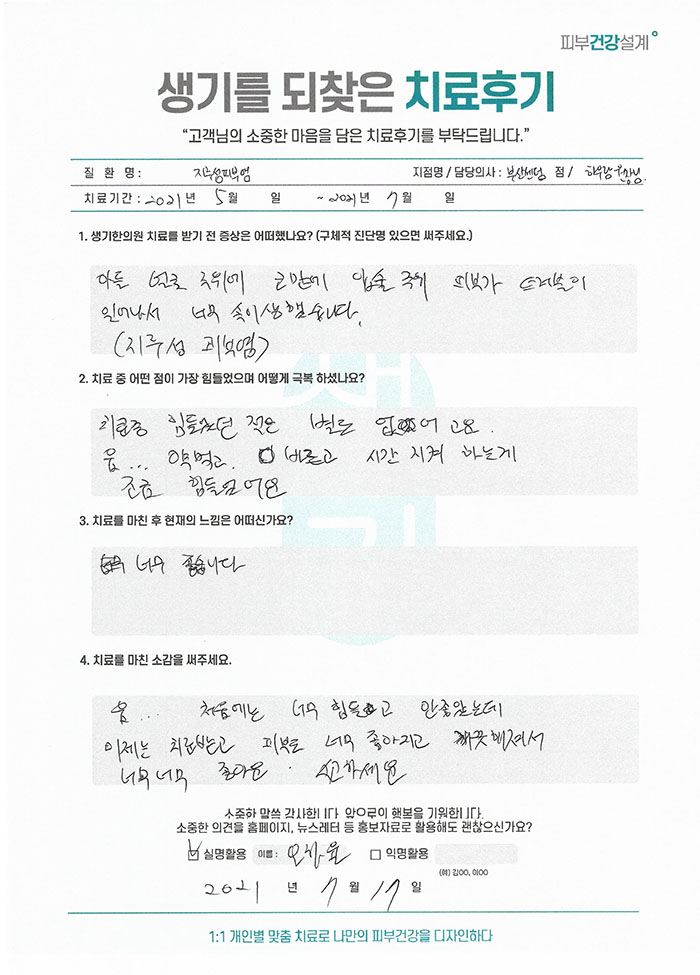 피부건강설계
생기를 되찾은 치료후기
"고객님의 소중한 마음을 담은 치료후기를 부탁드립니다."
질 환 명 : 지루성피부염 지점명 / 담당의사 : 부산센텀 점 / 원장님
치료기간 : 2021년 5월 일 ~ 2021년 7월 일
1. 생기한의원 치료를 받기 전 증상은 어떠했나요? (구체적 진단명 있으면 써주세요.)
아들 얼굴 주위에 입술 주위 피부가
일어나서 너무 속이상했습니다.
(지루성 피부염)
2. 치료 중 어떤 점이 가장 힘들었으며 어떻게 극복 하셨나요?
치료중 힘들었던 적은 별로 없었어고요.
음... 약먹고. 바르고 시간 지켜 하는게
조금 힘들었어요
3. 치료를 마친 후 현재의 느낌은 어떠신가요?
너무 좋습니다
4. 치료를 마친 소감을 써주세요.
음... 처음에는 너무 힘들고 안좋았는데
이제는 치료받고 피부도 너무 좋아지고 깨끗해져서
너무너무 좋아요.
소중한 말씀 감사합니다. 앞으로의 행복을 기원합니다.
소중한 의견을 홈페이지, 뉴스레터 등 홍보자료로 활용해도 괜찮으신가요?
실명활용 이름 : 익명활용
(예) 김OO, 이OO
2021 년 7 월 17 일
1:1 개인별 맞춤 치료로 나만의 피부건강을 디자인하다